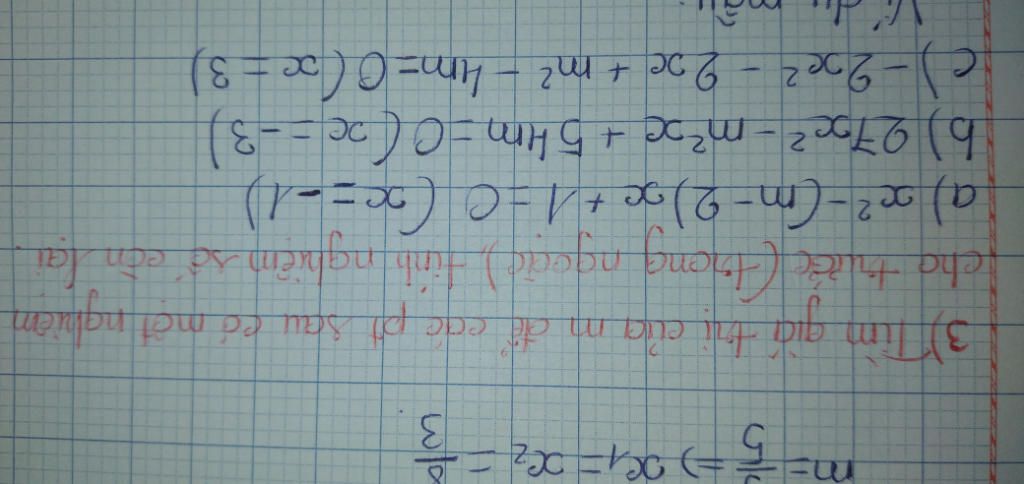 m = 5 => x₁ = x₂ = 8/3
3) Tìm giá trị của m để các pt sau có một nghiệm
cho trước (trong ngoặc), tính nghiệm số còn lại.
a) x² - (m - 2)x + 1 = 0 (x = -1)
b) 27x² - m²x + 54m = 0 (x = -3)
c) -2x² - 2x + m² - 4m = 0 (x = 3)
Ví dụ mẫu: